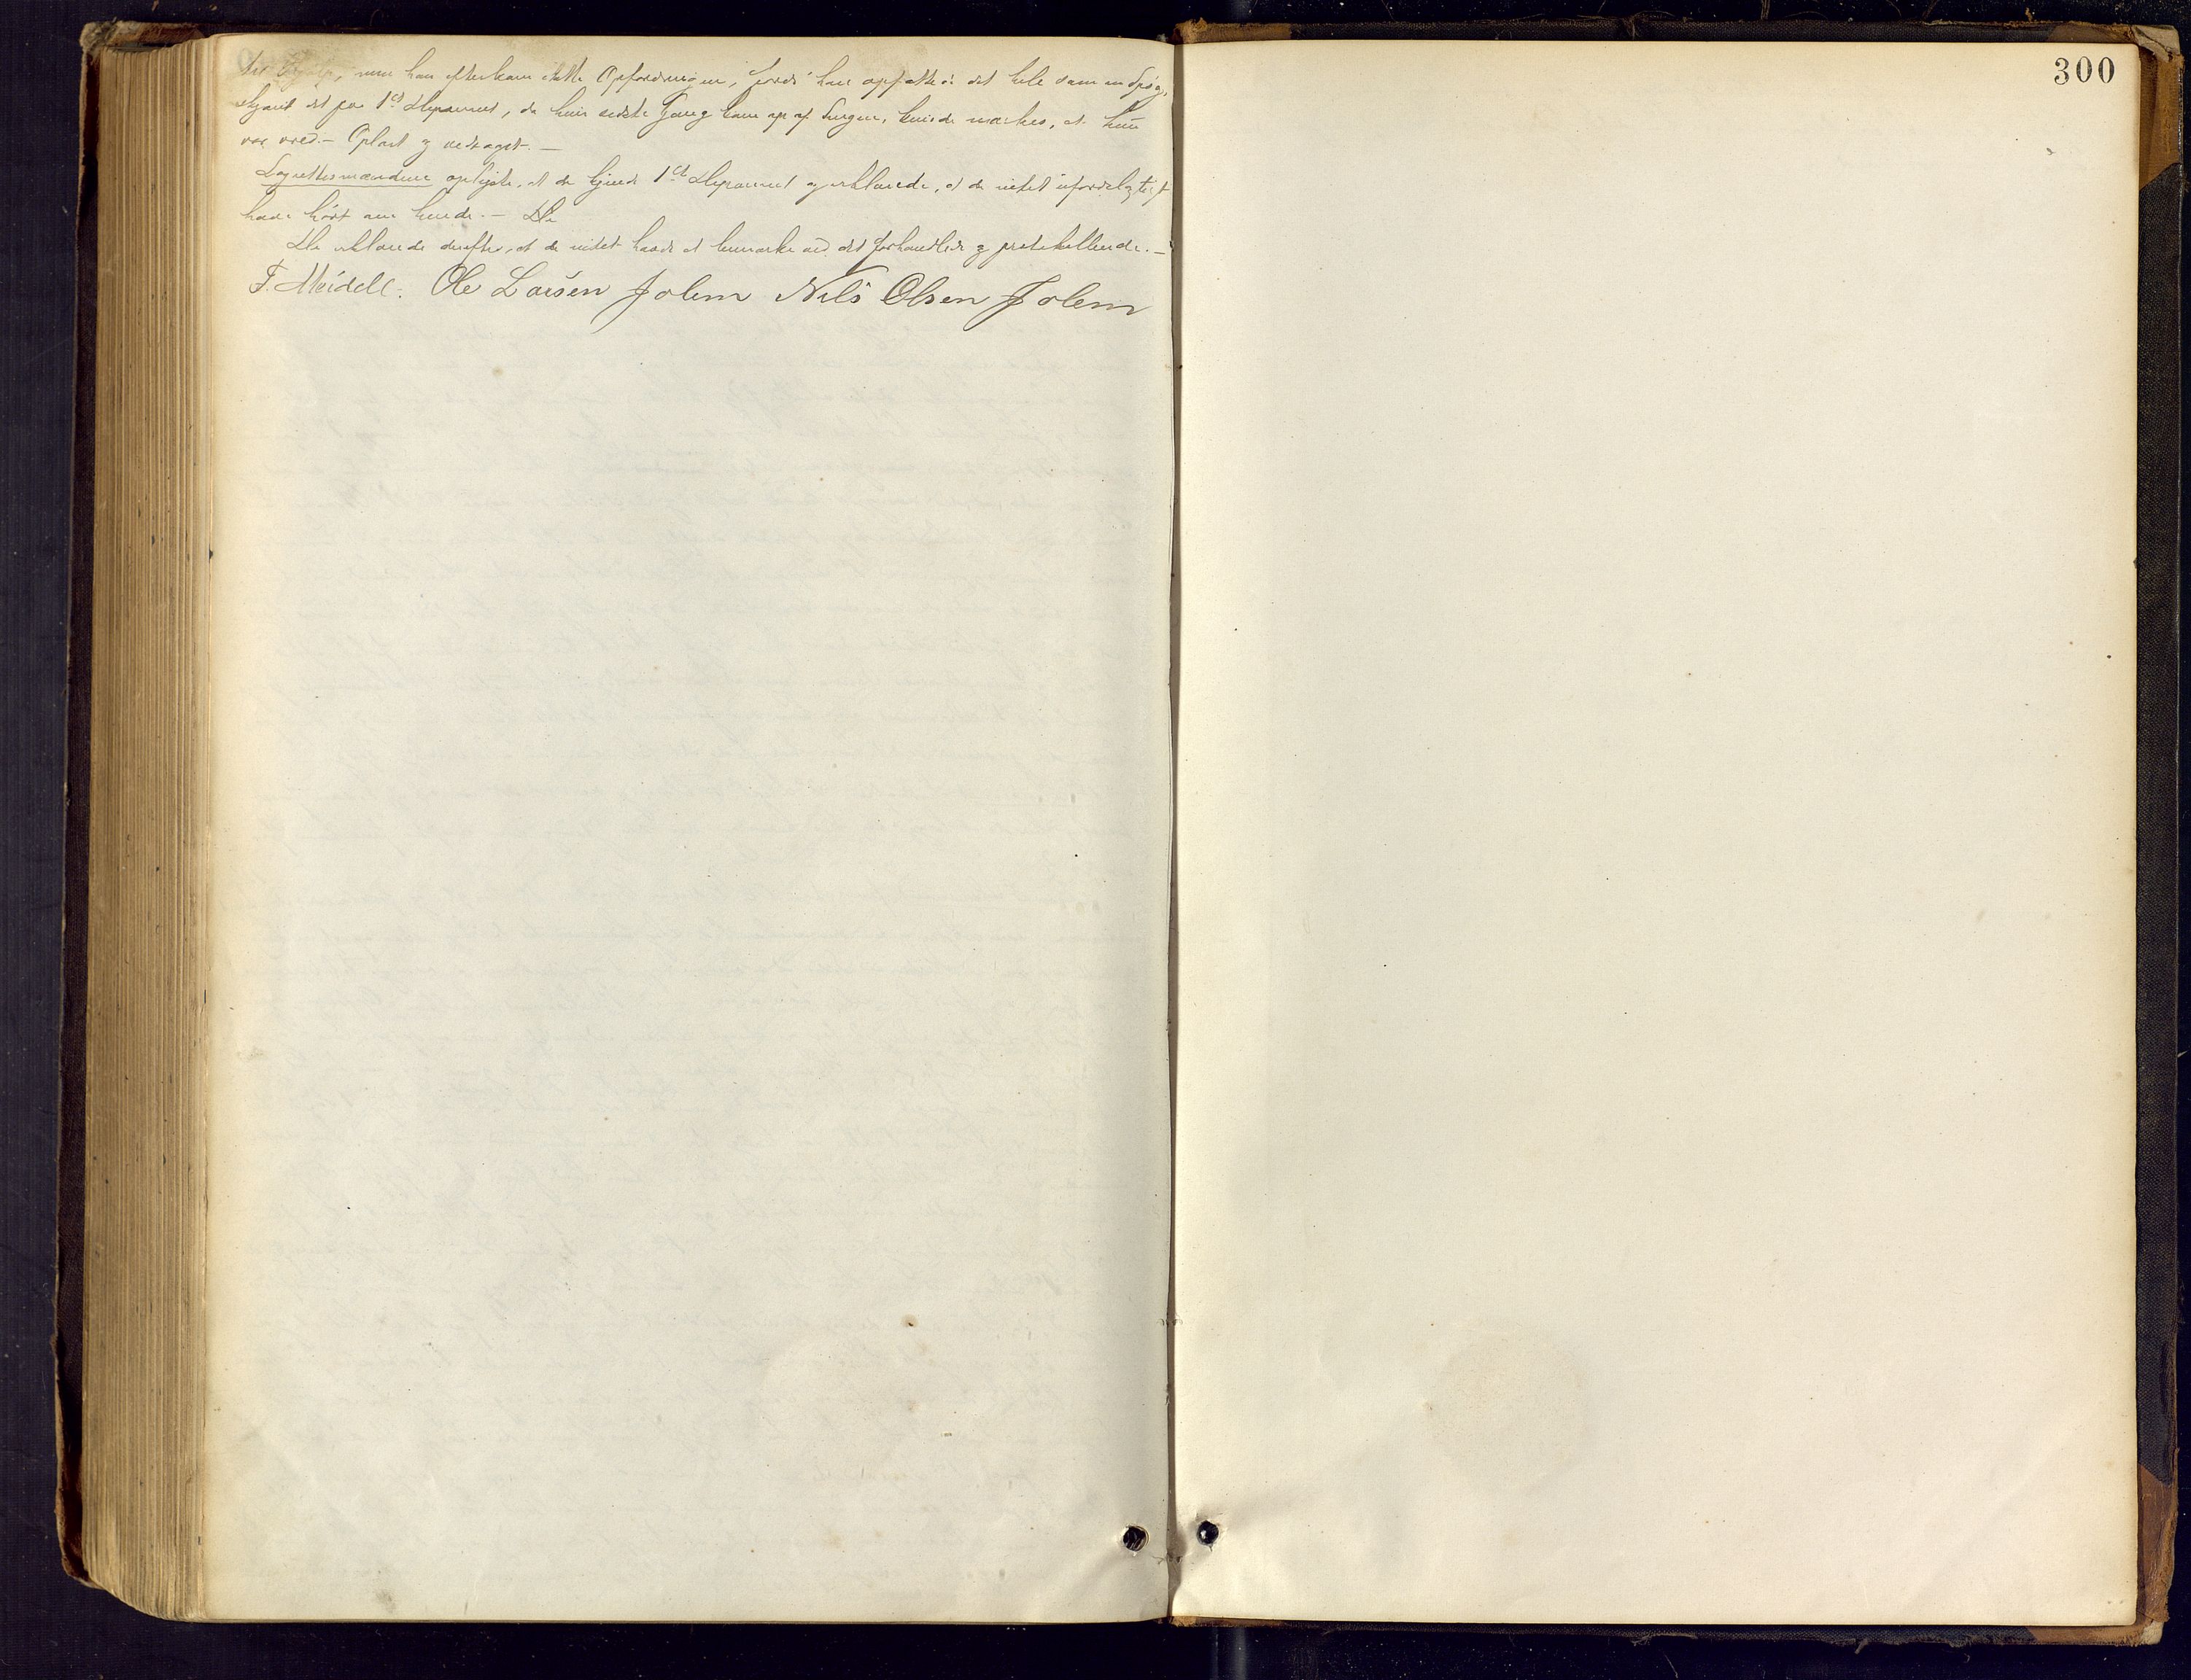 til Hjælp, men han efterkom ikke Opfordringen, fordi han opfattede det hele som en Spøg,
skjønt det paa 1ste Deponent, da hun sidste Gang kom op af Sengen, kunde mærkes, at hun
var vred. — Oplæst og vedtaget. —
Lagrettesmændene oplyste, at de kjendte 1ste Deponent og erklærede, at de intet ufordelagtigt
havde hørt om hende. — De
De erklærede derefter, at de intet havde at bemærke ved det forhandlede og protokollerede. —
F. Meidell. Ole Larsen Jolem Nils Olsen Jolem
300